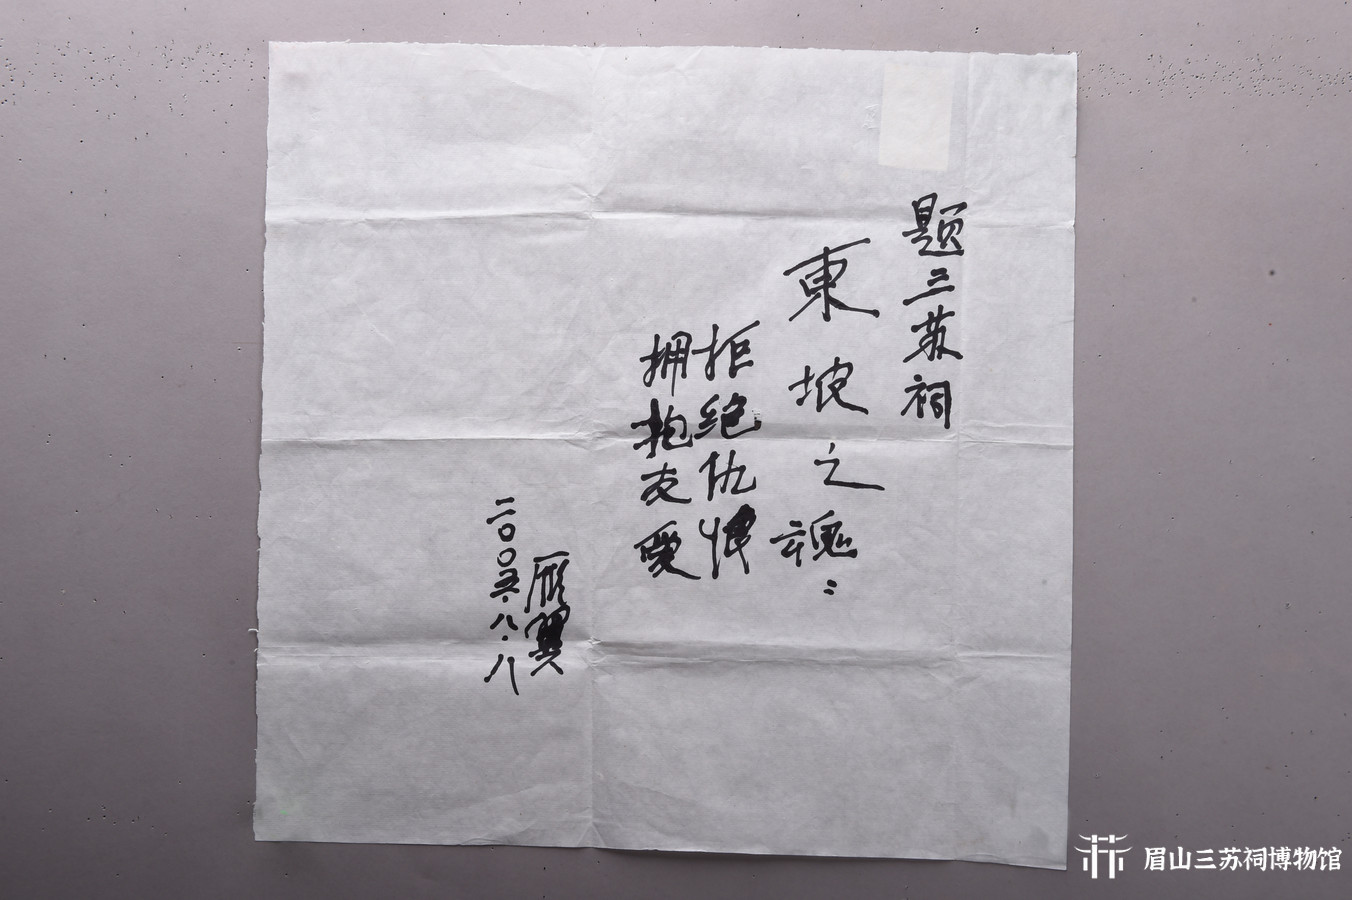 题三苏祠
東坡之魂：
拒绝仇恨
拥抱友爱
雁翼
二〇〇五.八.八
眉山三苏祠博物馆